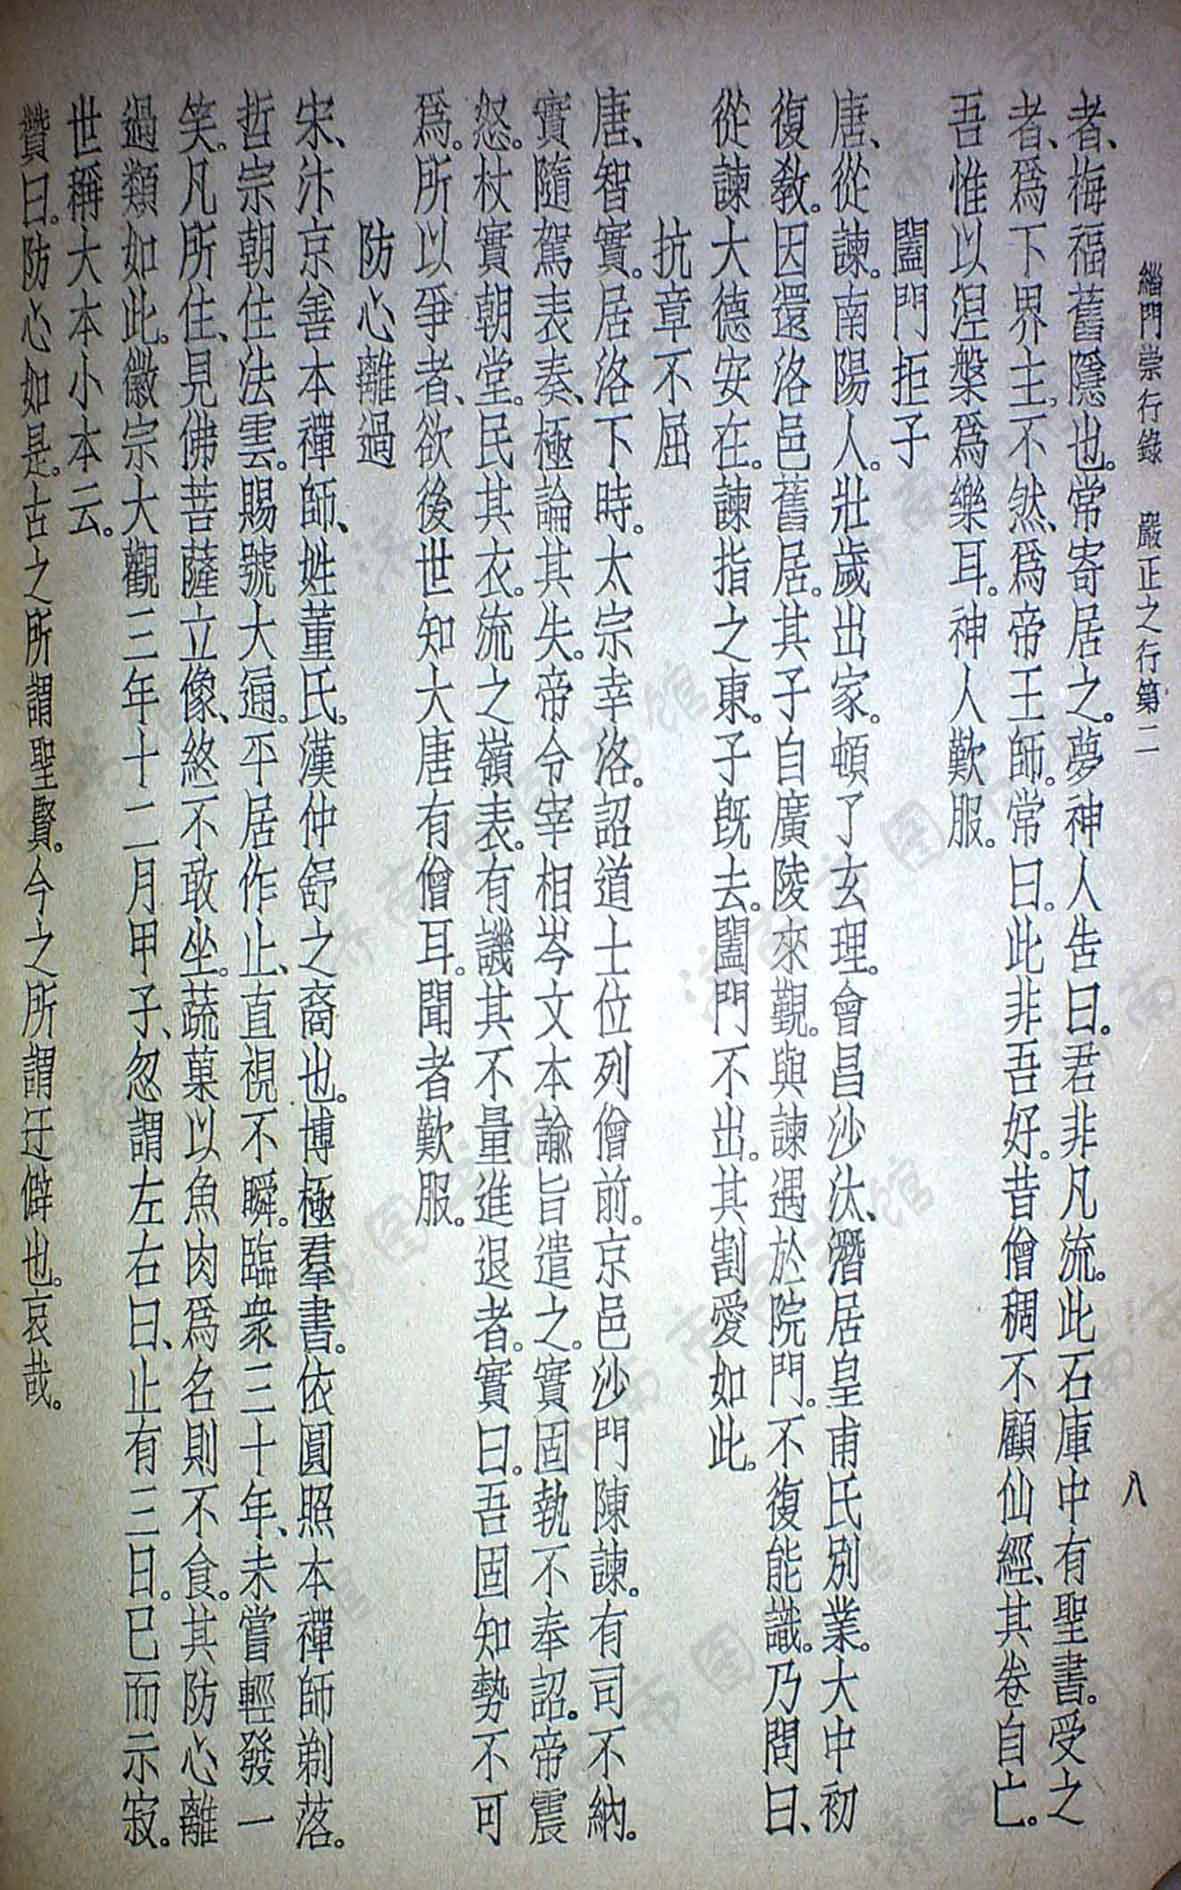 緇門崇行錄　嚴正之行第二　八
者、梅福舊隱也。常寄居之。夢神人告曰。君非凡流。此石庫中有聖書。受之
者、爲下界主。不然、爲帝王師。常曰。此非吾好。昔僧稠不顧仙經、其卷自亡。
吾惟以涅槃爲樂耳。神人歎服。
闔門拒子
唐、從諫。南陽人。壯歲出家。頓了玄理。會昌沙汰、潛居皇甫氏別業。大中初
復敎。因還洛邑舊居。其子自廣陵來觀。與諫遇於院門。不復能識。乃問曰、
從諫大德安在。諫指之東。子旣去。闔門不出。其割愛如此。
抗章不屈
唐、智實。居洛下時。太宗幸洛。詔道士位列僧前。京邑沙門陳諫。有司不納。
實隨駕表奏、極論其失。帝令宰相岑文本諭旨遣之。實固執不奉詔。帝震
怒。杖實朝堂。民其衣。流之嶺表。有譏其不量進退者。實曰。吾固知勢不可
爲。所以爭者、欲後世知大唐有僧耳。聞者歎服。
防心離過
宋、汴京善本禪師、姓董氏。漢仲舒之裔也。博極羣書。依圓照本禪師剃落。
哲宗朝住法雲。賜號大通。平居作止、直視不瞬。臨衆三十年、未嘗輕發一
笑。凡所住、見佛菩薩立像、終不敢坐。蔬菓以魚肉爲名則不食。其防心離
過類如此。徽宗大觀三年十二月甲子、忽謂左右曰、止有三日。已而示寂。
世稱大本小本云。
贊曰。防心如是。古之所謂聖賢。今之所謂迂僻也。哀哉。